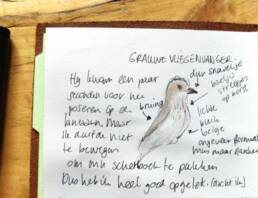 GRAUWE VLIEGENVANGER.
Hij kwam een paar
seconden voor me
poseren op de
Maar
ik durfde niet
te bewegen
om mn schetsboek te pakken
Dus heb ik heel goed opgelet. (dacht ik)
dun snaveltje
beetje
streepjes
op borst
bruinig
lichte
buik
beige
ongeveer formaat
mus maar slanker